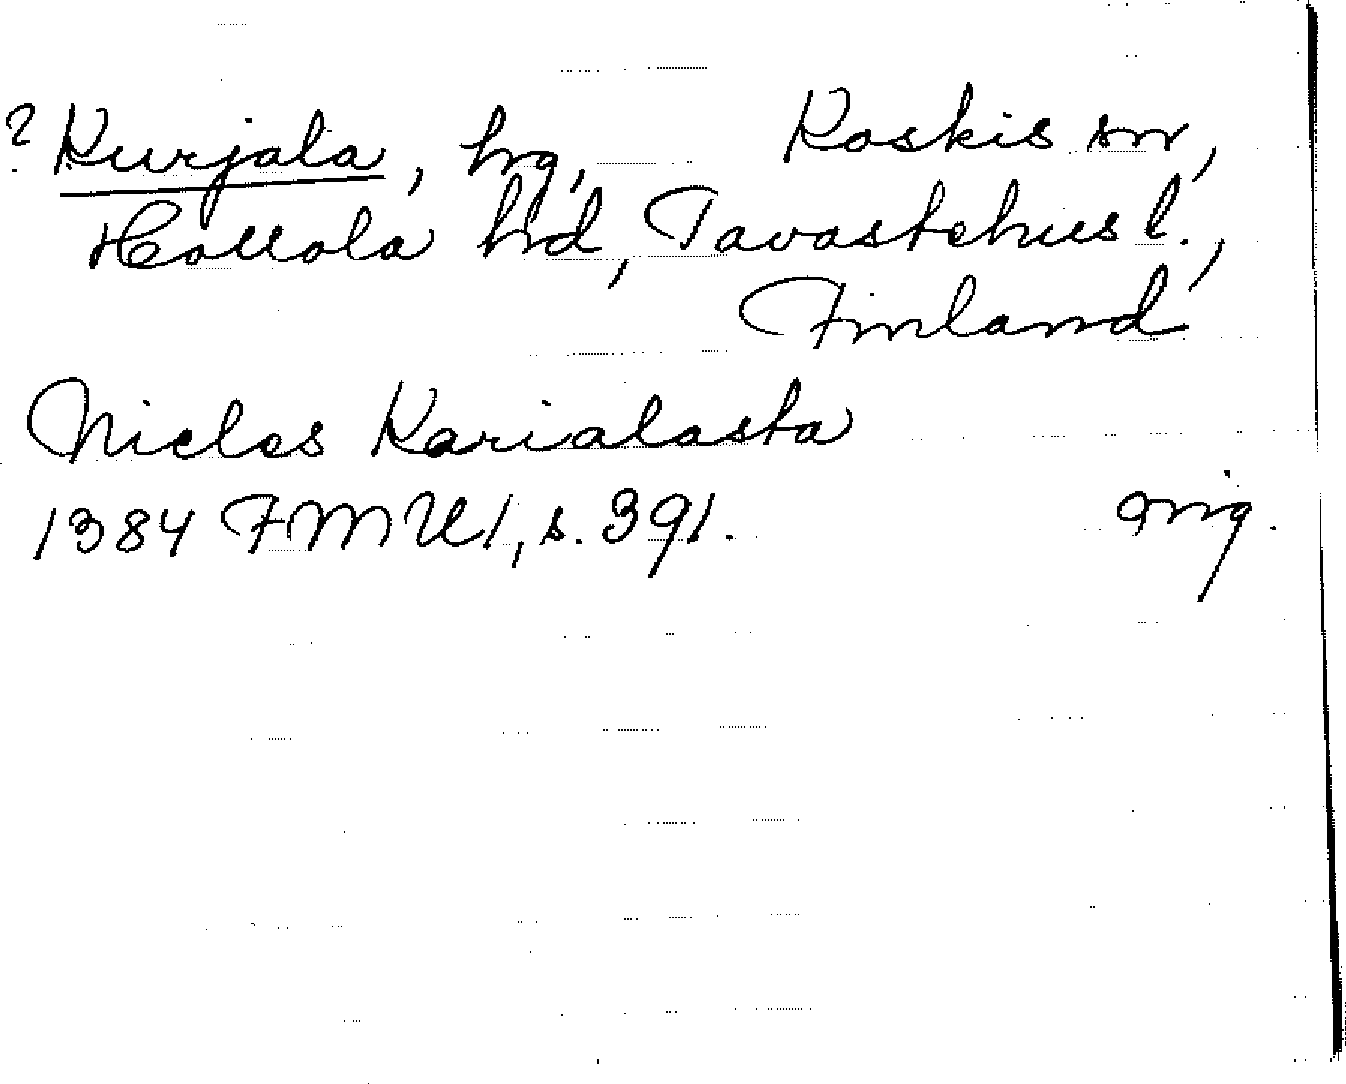 ? Kurjala, hg, Koskis sn,
Hollola hd, Tavastehus l.,
Finland
Niclos Karialasta
1384 FMU 1, s. 391. orig.